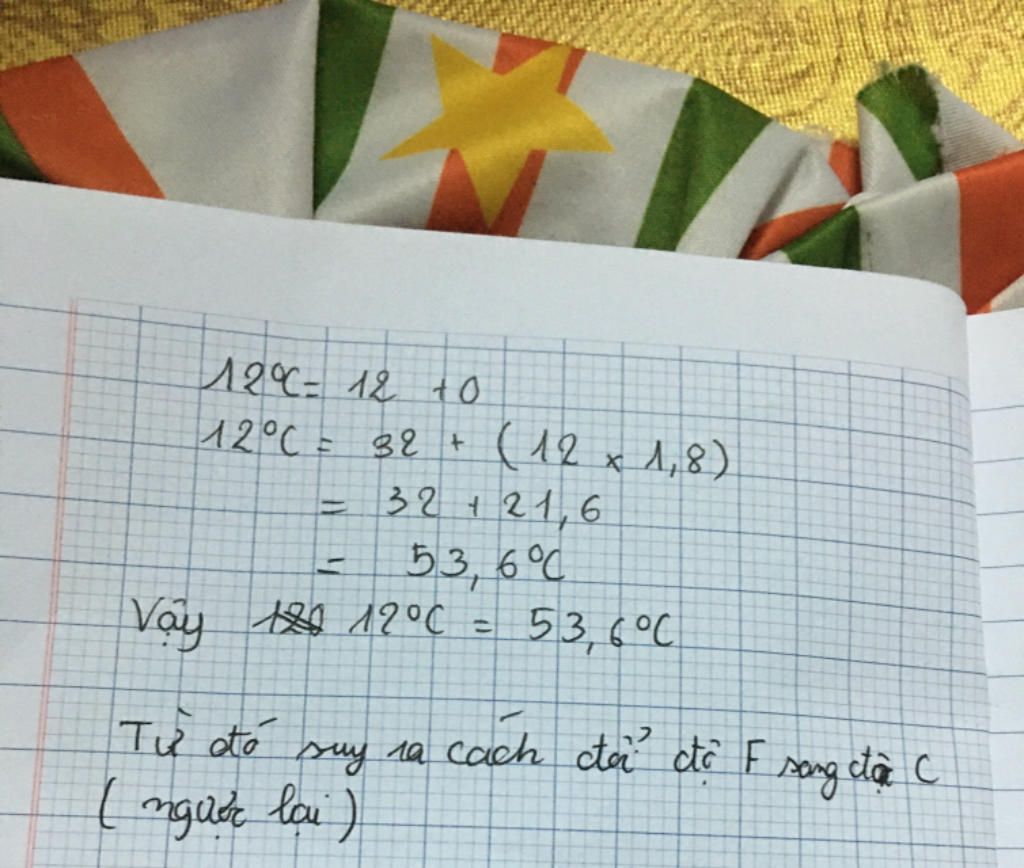 12°C = 12 + 0
12°C = 32 + (12 x 1,8)
= 32 + 21,6
= 53,6°C
Vậy 12°C = 53,6°C
Từ đó suy ra cách đổi độ F sang độ C
(ngược lại)